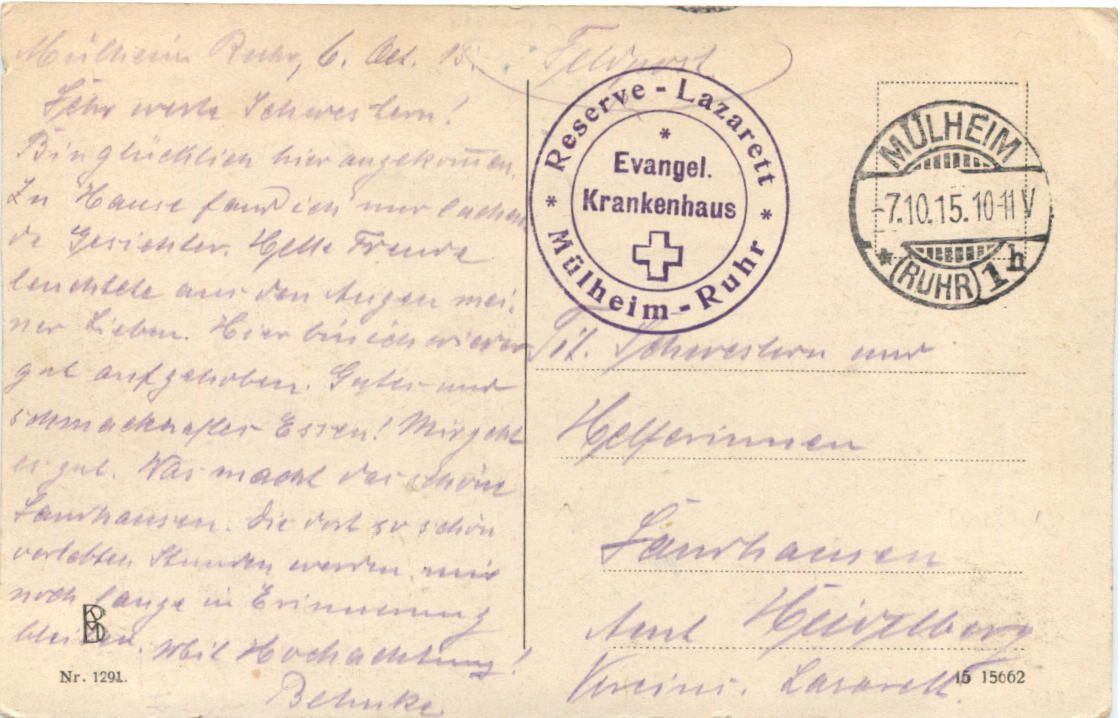 Mülheim Ruhr, 6. Oct. 15.
Sehr werte Schwestern!
Bin glücklich hier angekom̅en.
Zu Hause fand ich nur lachen
de Gesichter. Helle Freude
leuchtete aus den Augen mei-
ner Lieben. Hier bin ich wieder
gut aufgehoben. Gutes und
schmackhaftes Essen! Mir geht
es gut. Was macht das schöne
Sandhausen. Die dort so schön
verlebten Stunden werden mir
noch lange in Erinnerung
bleiben. Mit Hochachtung!
Behnke
Nr. 1291.
Feldpost.
Reserve - Lazarett
Evangel.
Krankenhaus
Mülheim - Ruhr
MÜLHEIM
-7.10.15.10-11 V
(RUHR) 1h
Tit. Schwestern und
Helferinnen
Sandhausen
Amt Heidelberg
Vereins. Lazarett.
15 15662